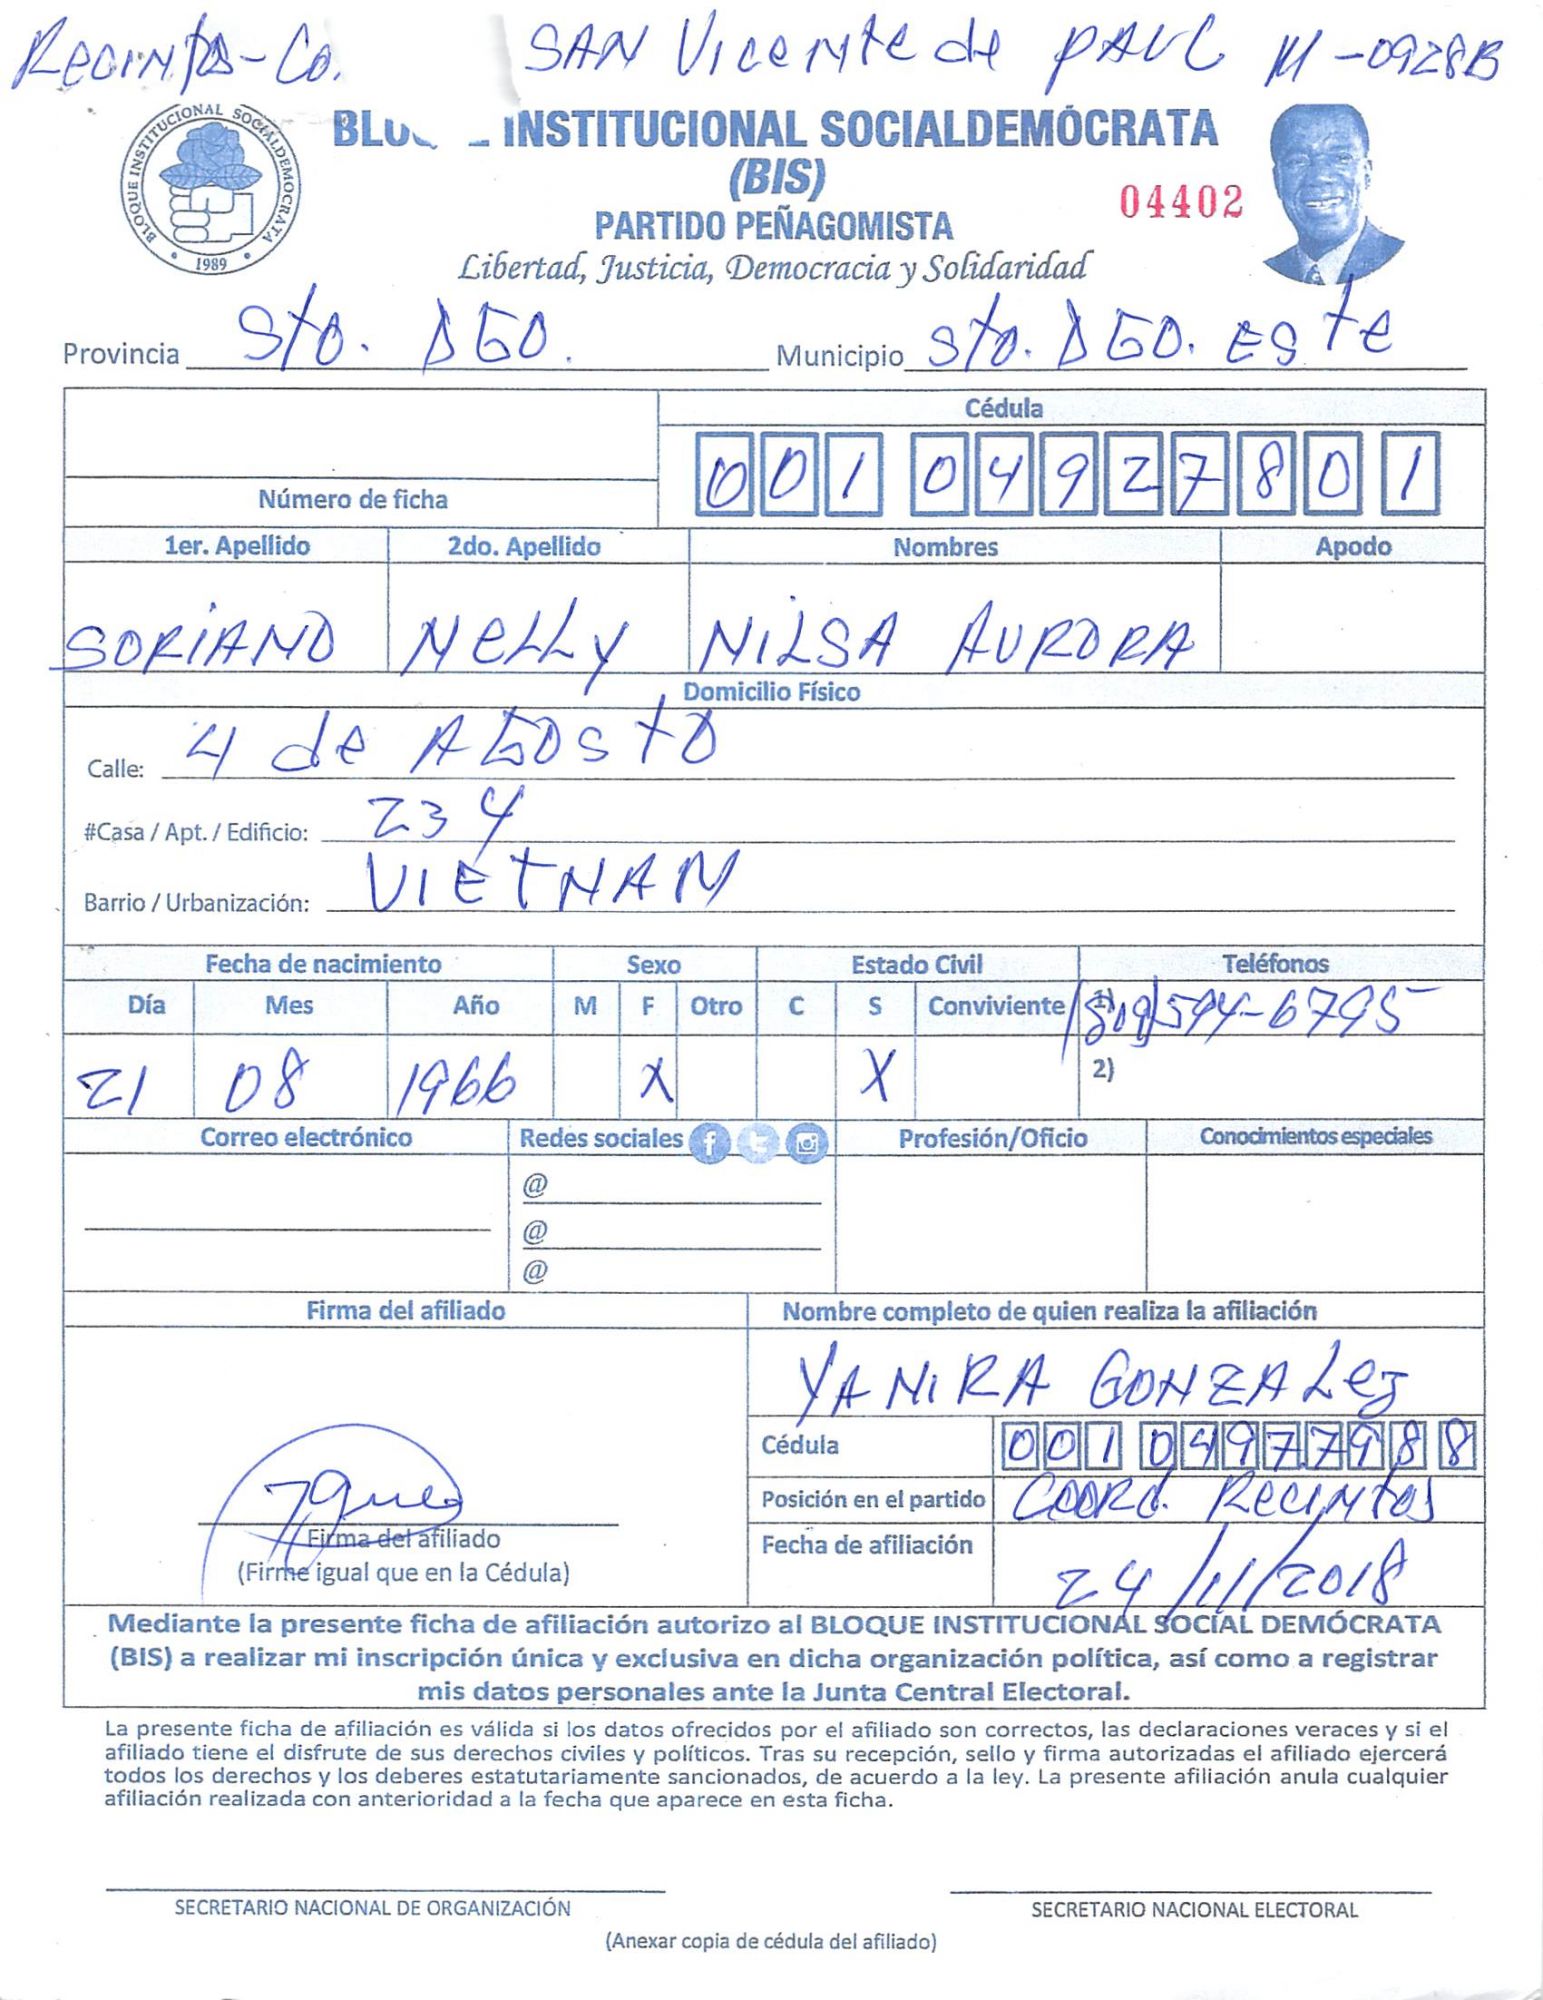 Recintos-Co. SAN Vicente de PAUL M-0928B
BLOQUE INSTITUCIONAL SOCIALDEMOCRATA
1989
INSTITUCIONAL SOCIALDEMÓCRATA
(BIS)
04402
PARTIDO PEÑAGOMISTA
Libertad, Justicia, Democracia y Solidaridad
Provincia Sto. DGO. Municipio Sto. DGO. ESte
Cédula
001 0492780 1
Número de ficha
1er. Apellido 2do. Apellido Nombres Apodo
SORiANO NELLY NiLSA AURORA
Domicilio Físico
Calle: 4 de AGOSTO
#Casa / Apt. / Edificio: 234
Barrio / Urbanización: VIETNAM
Fecha de nacimiento Sexo Estado Civil Teléfonos
Día Mes Año M F Otro C S Conviviente 1) (809)594-6795
21 08 1966 X X 2)
Correo electrónico Redes sociales Profesión/Oficio Conocimientos especiales
@
@
@
Firma del afiliado Nombre completo de quien realiza la afiliación
YANiRA GONZALez
Cédula 001 0497798 8
Posición en el partido COORD. Recintos
Firma del afiliado
(Firme igual que en la Cédula)
Fecha de afiliación 24/11/2018
Mediante la presente ficha de afiliación autorizo al BLOQUE INSTITUCIONAL SOCIAL DEMÓCRATA
(BIS) a realizar mi inscripción única y exclusiva en dicha organización política, así como a registrar
mis datos personales ante la Junta Central Electoral.
La presente ficha de afiliación es válida si los datos ofrecidos por el afiliado son correctos, las declaraciones veraces y si el
afiliado tiene el disfrute de sus derechos civiles y políticos. Tras su recepción, sello y firma autorizadas el afiliado ejercerá
todos los derechos y los deberes estatutariamente sancionados, de acuerdo a la ley. La presente afiliación anula cualquier
afiliación realizada con anterioridad a la fecha que aparece en esta ficha.
SECRETARIO NACIONAL DE ORGANIZACIÓN SECRETARIO NACIONAL ELECTORAL
(Anexar copia de cédula del afiliado)